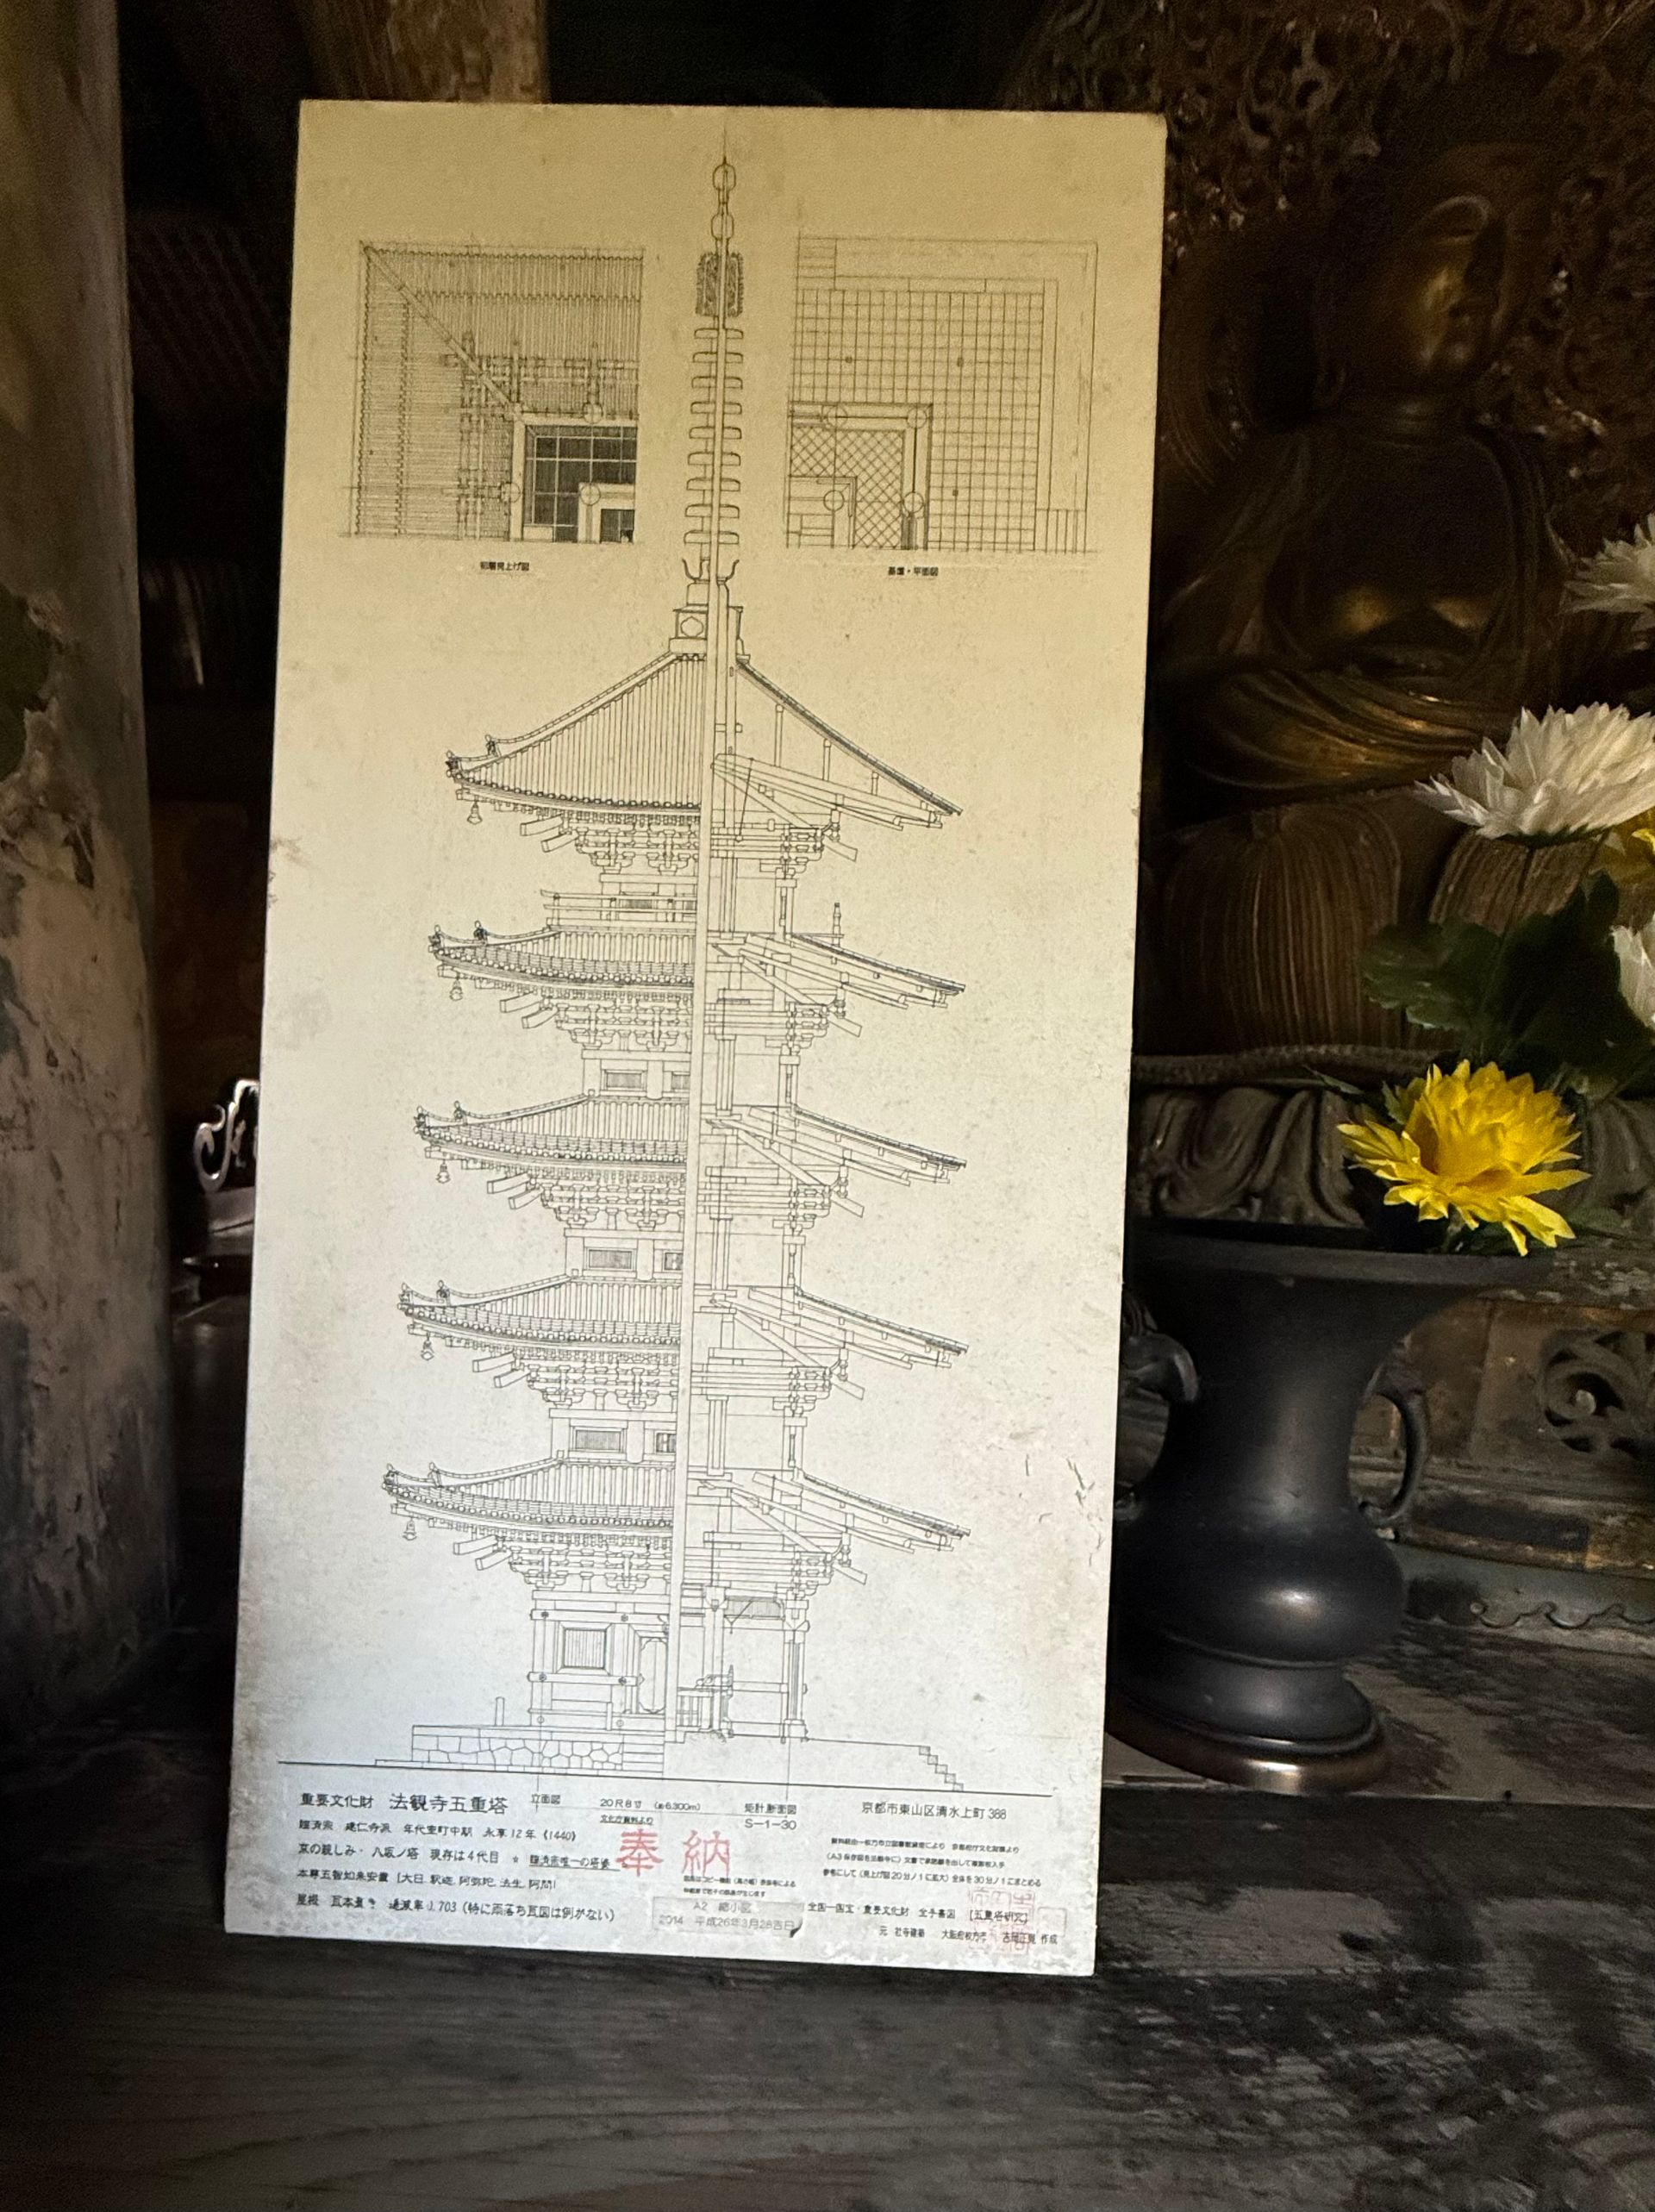 初層見上げ図
基壇・平面図
重要文化財 法観寺五重塔
立面図
20尺8寸 (約6.300m)
矩計断面図
京都市東山区清水上町 388
文化庁資料より
S-1-30
臨済宗 建仁寺派 年代室町中期 永享12年 (1440)
京の親しみ・八坂ノ塔 現存は4代目 ☆ 臨済宗唯一の塔姿
奉納
本尊五智如来安置 [大日, 釈迦, 阿弥陀, 法生, 阿閦]
屋根 瓦本葺き 逓減率0.703 (特に雨落ち瓦図は例がない)
A2 縮小図
2014 平成26年3月28吉日
参考にして (見上げ図20分ノ1に拡大) 全体を30分ノ1にまとめる
全国一国宝・重要文化財 全手書図 [五重塔研究]
元 社寺建築 大阪府枚方市
作成